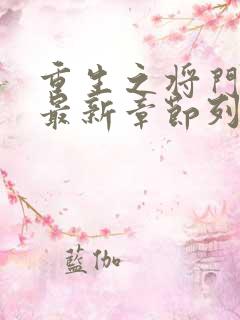 重生之将门
最新章節列
藍伽